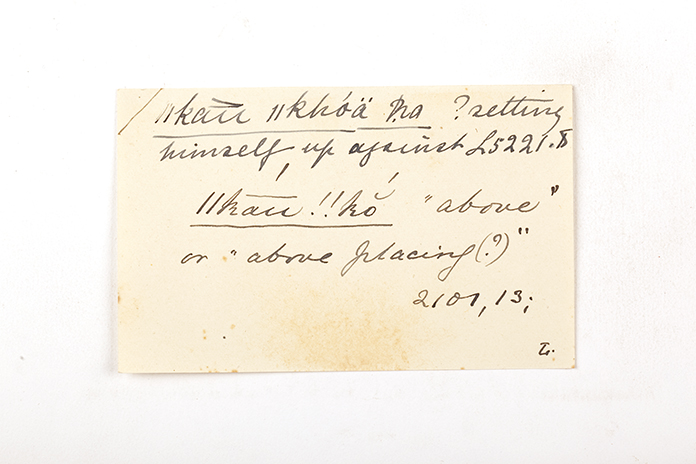 / ǁkāū ǁkhóä ha ? setting
himself up against L5221.
ǁkāū !! kŏ "above"
or "above placing (?)"
2101, 13;
L.